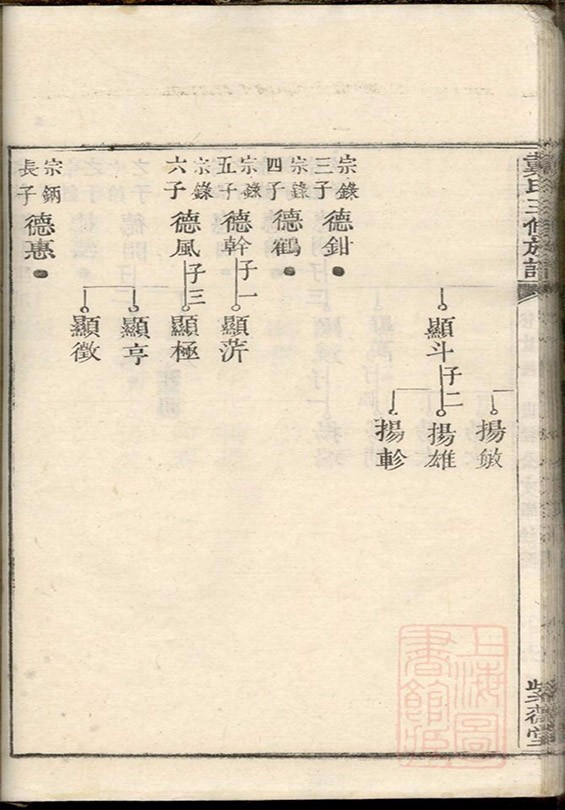 氏三修族譜
揚敏
顯斗 子二
揚雄
揚軫
宗錄三子 德鉗
宗錄四子 德鶴
宗錄五子 德幹 子一
顯
宗錄六子 德風 子三
顯極
顯亨
顯徵
宗炳長子 德惠
上海圖書館藏